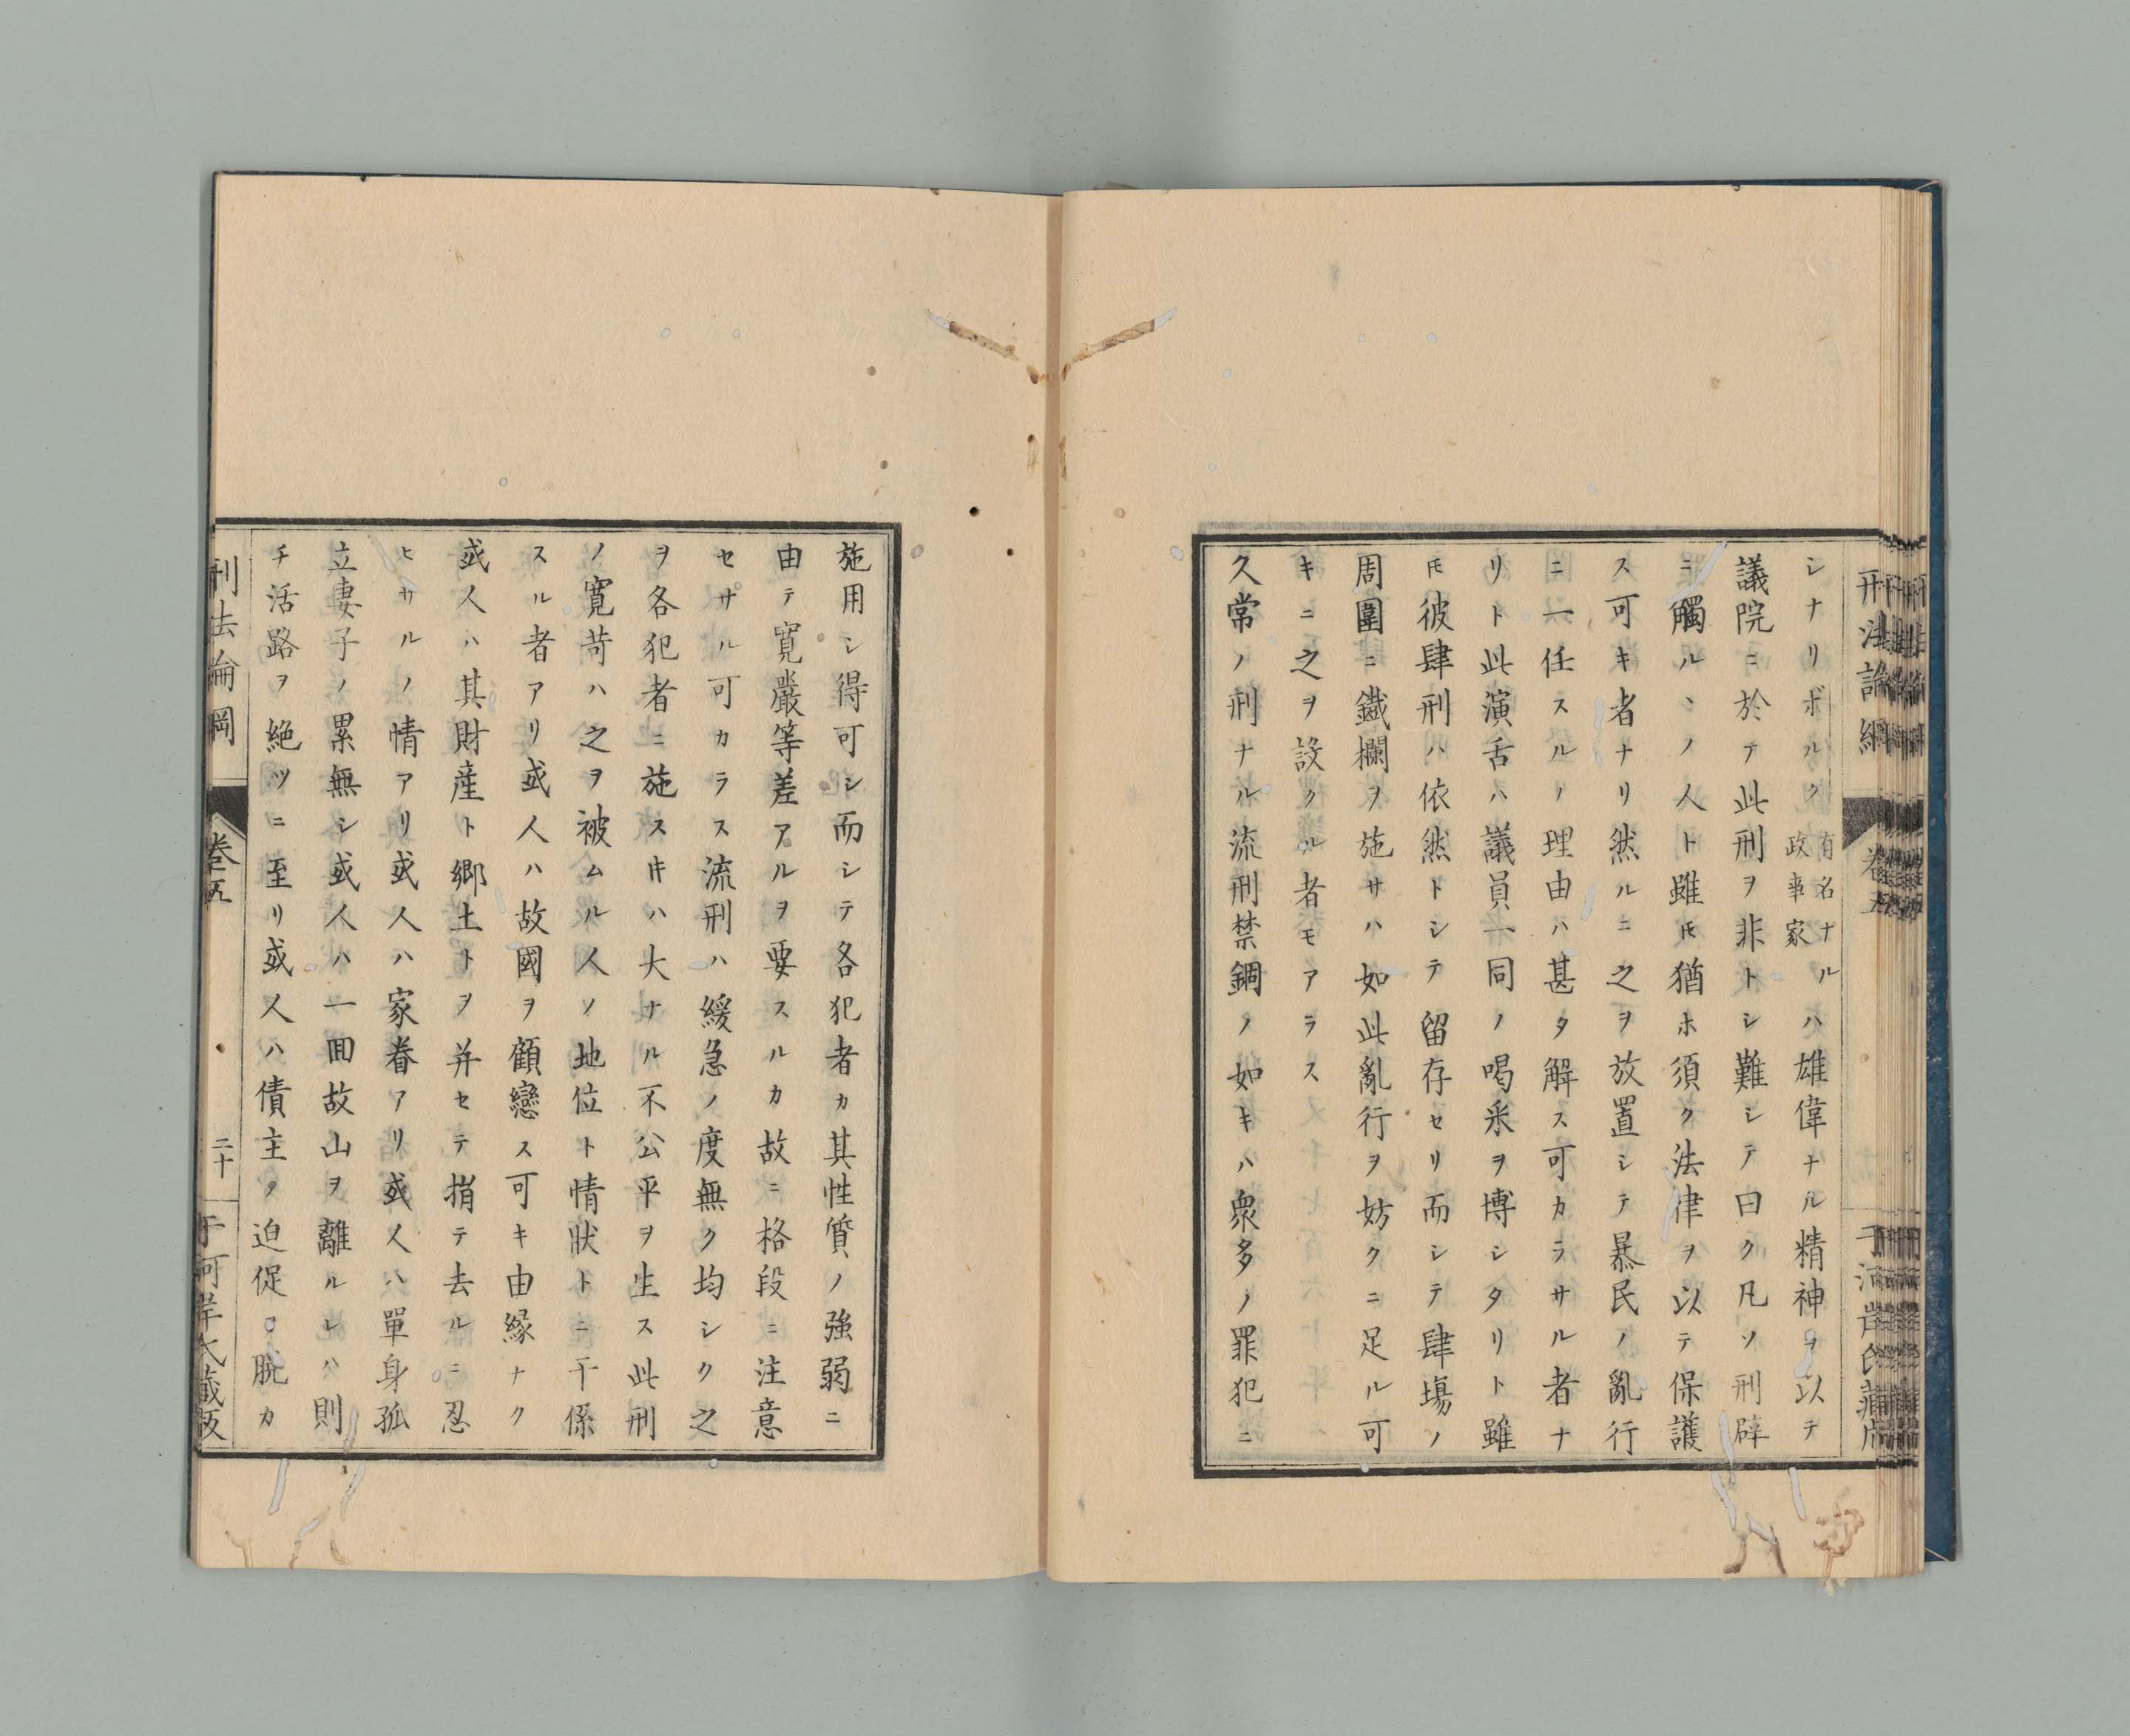 シナリボルク有名ナル政事家ハ雄偉ナル精神ヲ以テ
議院ニ於テ此刑ヲ非トシ難シテ曰ク凡ソ刑辟
ニ觸ルヽノ人ト雖𪜈猶ホ須ク法律ヲ以テ保護
ス可キ者ナリ然ルニ之ヲ放置シテ暴民ノ亂行
ニ一任スルノ理由ハ甚タ解ス可カラサル者ナ
リト此演舌ハ議員一同ノ喝采ヲ博シタリト雖
𪜈彼肆刑ハ依然トシテ留存セリ而シテ肆塲ノ
周圍ニ鐵欄ヲ施サハ如此亂行ヲ妨クニ足ル可
キニ之ヲ設クル者モアラス
久常ノ刑ナル流刑禁錮ノ如キハ衆多ノ罪犯ニ
刑法論綱
卷五
施用シ得可シ而シテ各犯者カ其性質ノ強弱ニ
由テ寛嚴等差アルヲ要スルカ故ニ格段ニ注意
セサル可カラス流刑ハ緩急ノ度無ク均シク之
ヲ各犯者ニ施ス𪜈ハ大ナル不公平ヲ生ス此刑
ノ寛苛ハ之ヲ被ムル人ソ地位ト情狀トニ干係
スル者アリ或人ハ故國ヲ顧戀ス可キ由縁ナク
或人ハ其財産ト郷土トヲ并セテ捎テ去ルニ忍
ヒサルノ情アリ或人ハ家眷アリ或人ハ單身孤
立妻子ノ累無シ或人ハ一囬故山ヲ離ルレハ則
チ活路ヲ絶ツニ至リ或人ハ債主ノ迫促ヲ脱カ
刑法論綱
卷五
二十
于河岸氏藏版